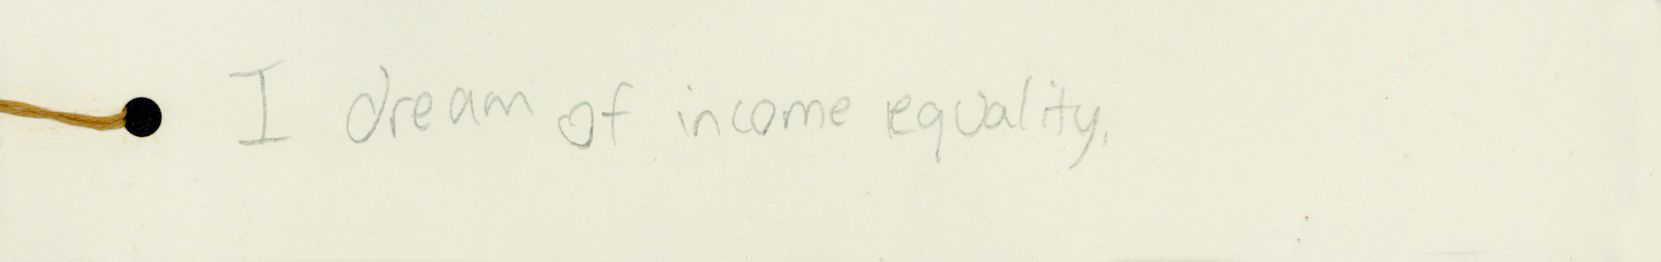 I dream of income equality.